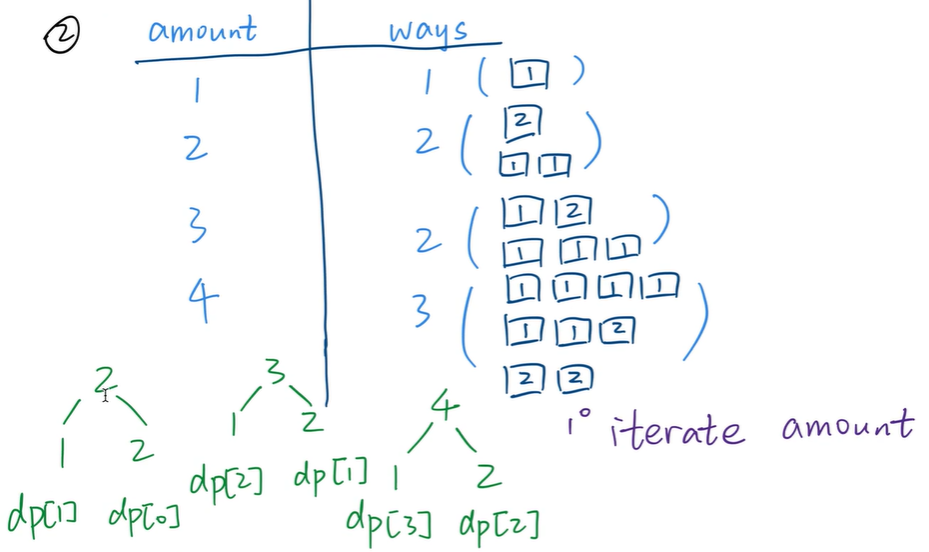 ② amount ways
1 1 ( 1 )
2 2 ( 2
1 1 )
3 2 ( 1 2
1 1 1 )
4 3 ( 1 1 1 1
1 1 2
2 2 )
2
1 2
dp[1] dp[0]
3
1 2
dp[2] dp[1]
4
1 2
dp[3] dp[2]
1° iterate amount